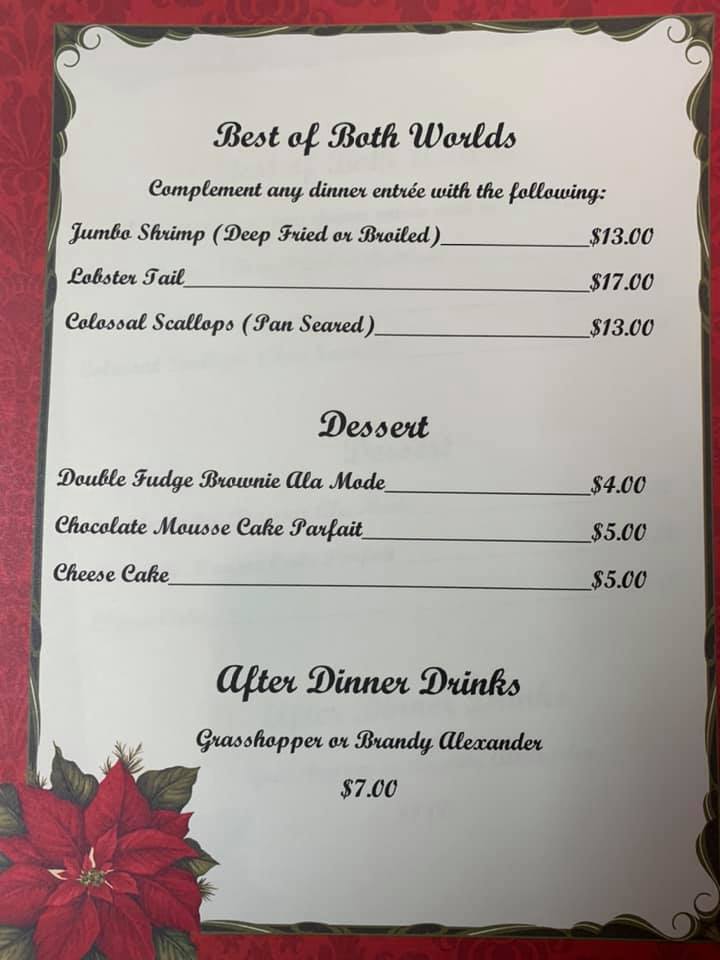 Best of Both Worlds
Complement any dinner entrée with the following:
Jumbo Shrimp (Deep Fried or Broiled)_______________$13.00
Lobster Tail_______________$17.00
Colossal Scallops (Pan Seared)_______________$13.00
Dessert
Double Fudge Brownie Ala Mode_______________$4.00
Chocolate Mousse Cake Parfait_______________$5.00
Cheese Cake_______________$5.00
After Dinner Drinks
Grasshopper or Brandy Alexander
$7.00